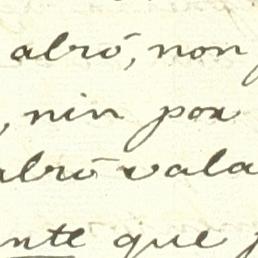 abró, non
, nin por
abró vala
nte que